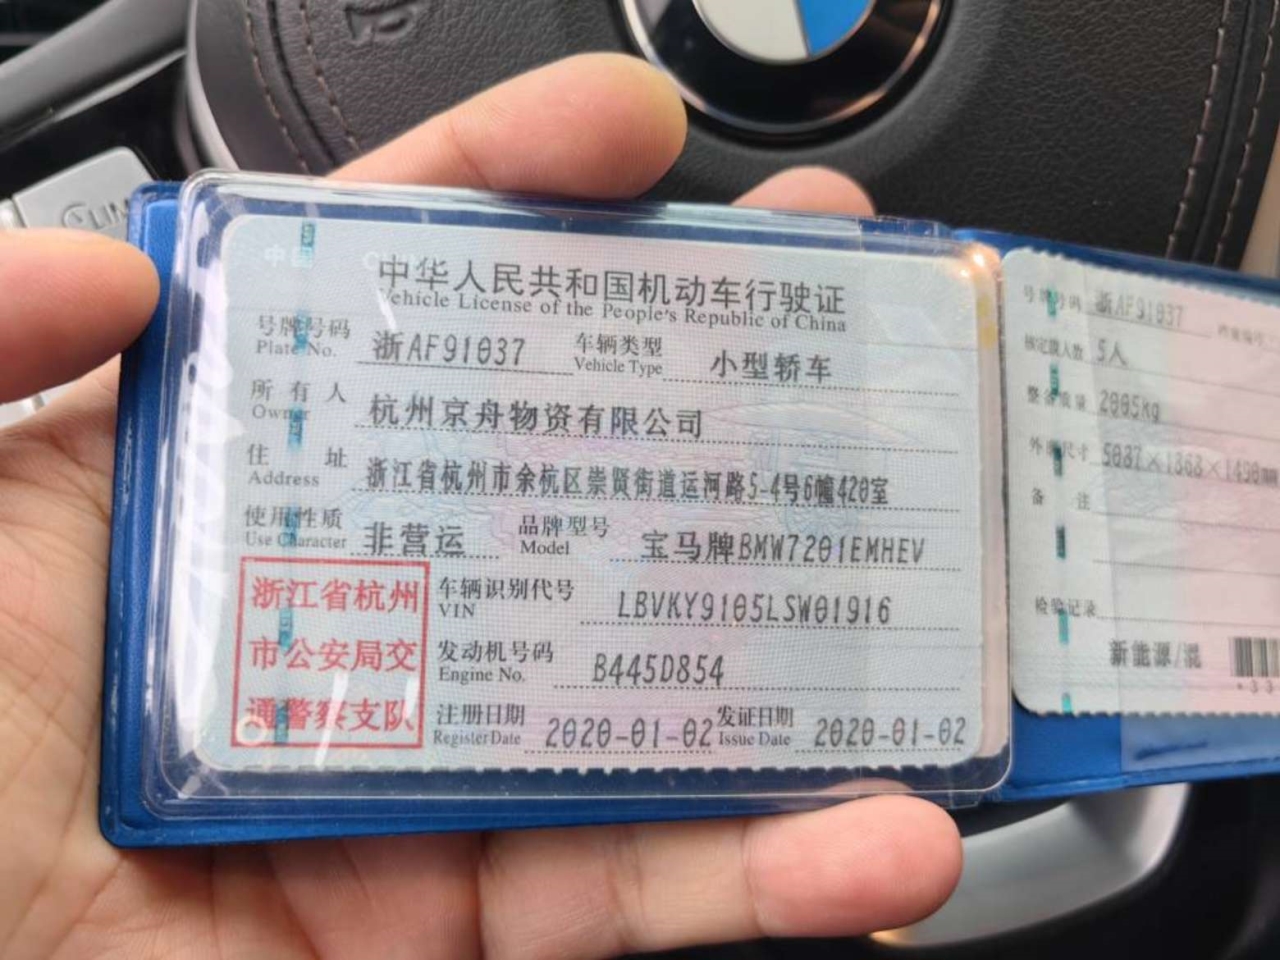 中华人民共和国机动车行驶证
Vehicle License of the People's Republic of China
号牌号码 浙AF91037 车辆类型 小型轿车
Plate No. Vehicle Type
所有人 杭州京舟物资有限公司
Owner
住址 浙江省杭州市余杭区崇贤街道运河路5-4号6幢420室
Address
使用性质 非营运 品牌型号 宝马牌BMW7201EMHEV
Use Character Model
浙江省杭州
市公安局交
通警察支队
车辆识别代号 LBVKY9105LSW01916
VIN
发动机号码 B445D854
Engine No.
注册日期 2020-01-02 发证日期 2020-01-02
Register Date Issue Date
号牌号码 浙AF91037
核定载人数 5人
整备质量 2005Kg
外廓尺寸 5087×1868×1490mm
备注
检验记录
新能源/混